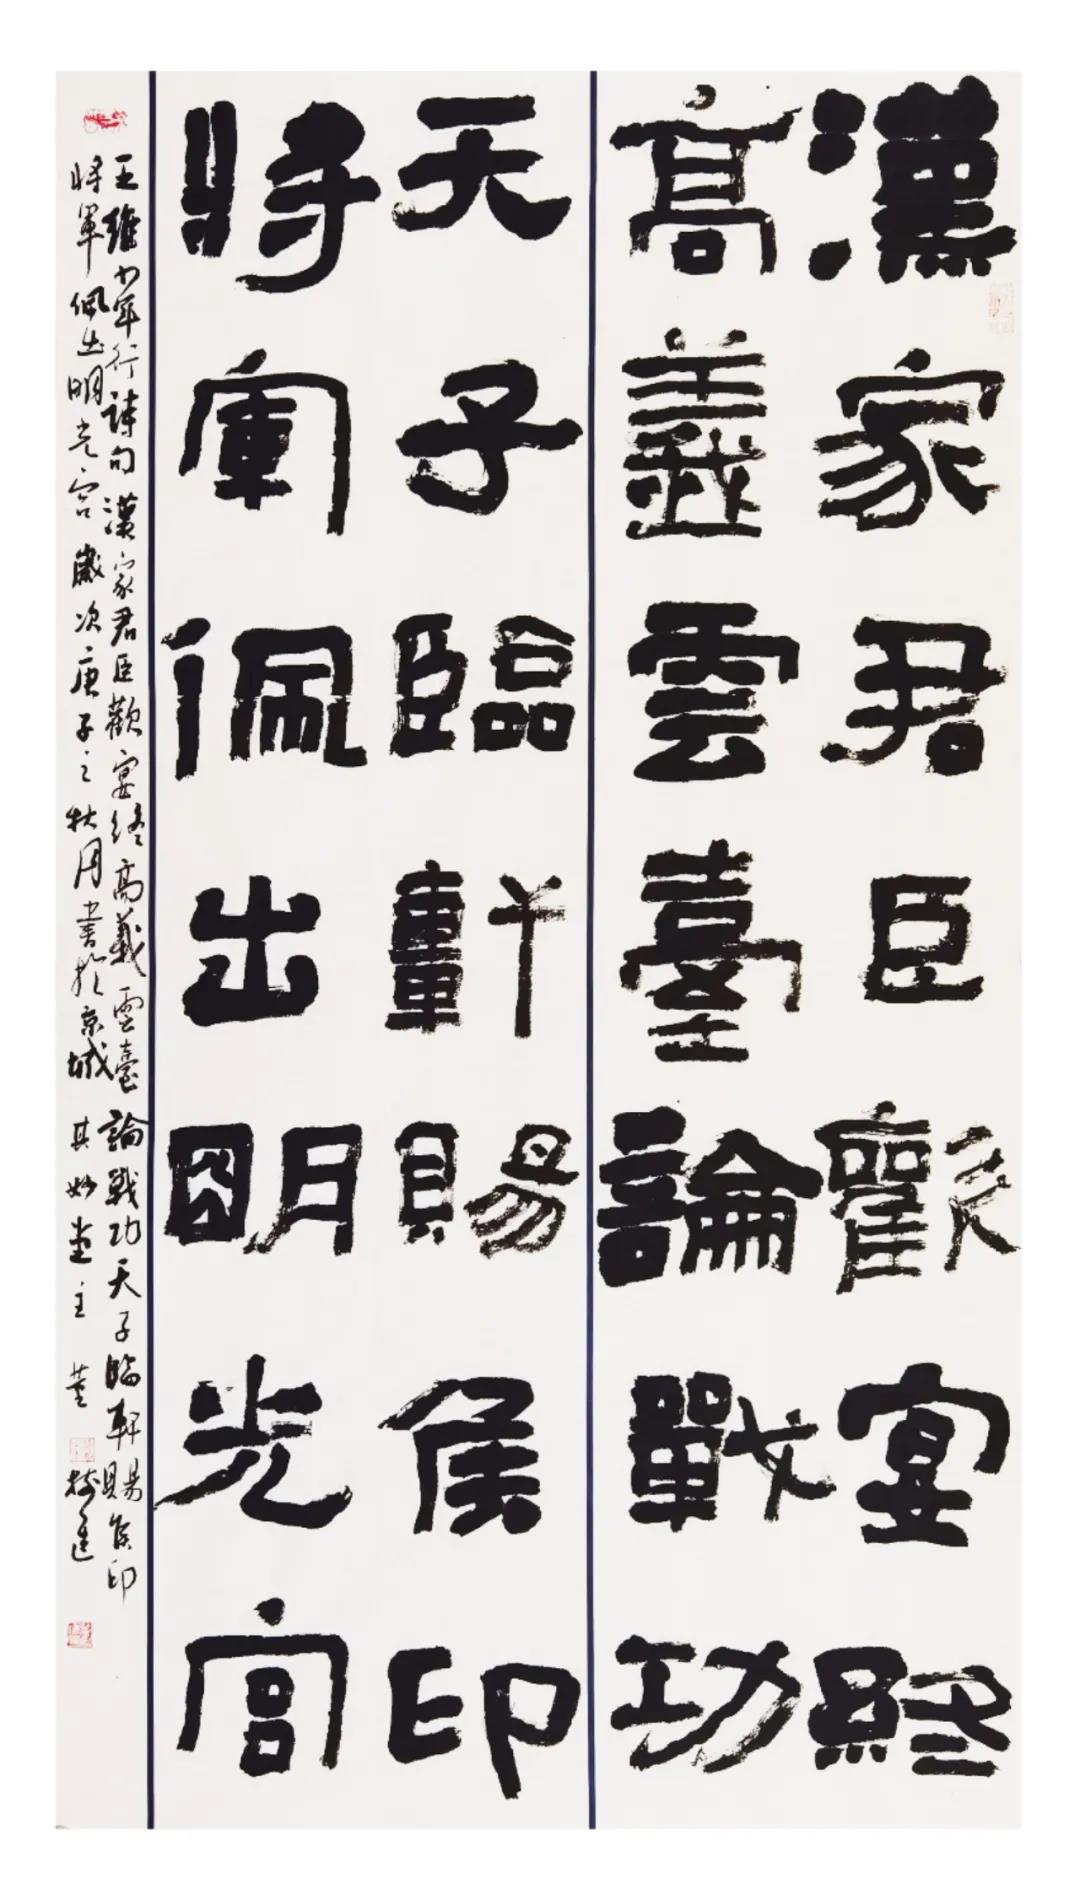 漢家君臣歡宴終
高義雲臺論戰功
天子臨軒賜侯印
將軍佩出明光宮
王維少年行詩句漢家君臣歡宴終高義雲臺論戰功天子臨軒賜侯印
將軍佩出明光宮歲次庚子之秋月書於京城其妙堂主黄樹進